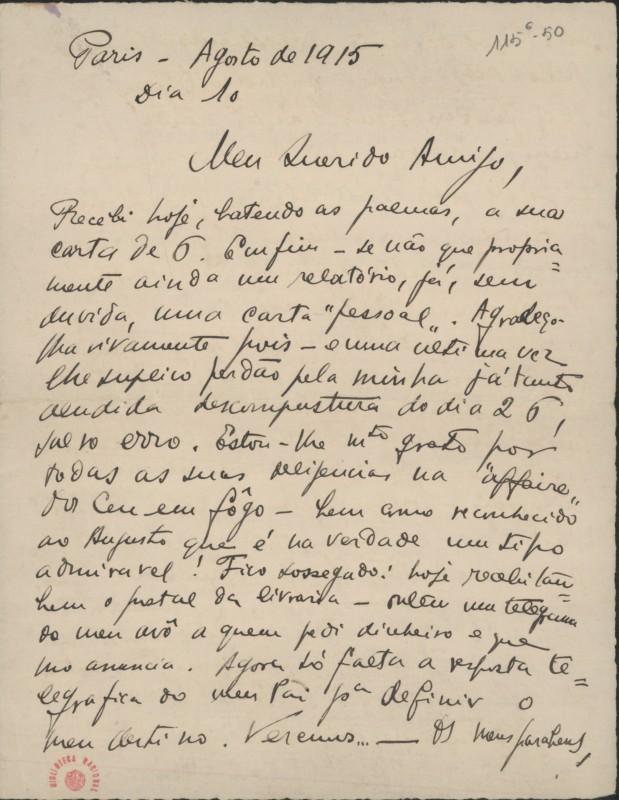 115⁶-50
Paris - Agosto de 1915
Dia 10
Meu Querido Amigo,
Recebi hoje, batendo as palmas, a sua
carta de 6. Emfim - se não que propria=
mente ainda um relatório, já, sem
duvida, uma carta "pessoal". Agradeço-
lha vivamente pois - e uma ultima vez
lhe suplico perdão pela minha já tanta
descompustura do dia 26,
salvo erro. Estou-lhe mto grato por
todas as suas deligencias na "affaire"
do Ceu em fôgo - bem como reconhecido
ao Augusto que é na verdade um tipo
admiravel! Fico sossegado! hoje recebi tam=
bem o postal da livraria - um telegrama
do meu avô a quem pedi dinheiro e que
mo anuncia. Agora só falta a resposta te=
legrafica do meu Pai pa definir o
meu destino. Veremos... — Os meus parabens,
BIBLIOTECA NACIONAL